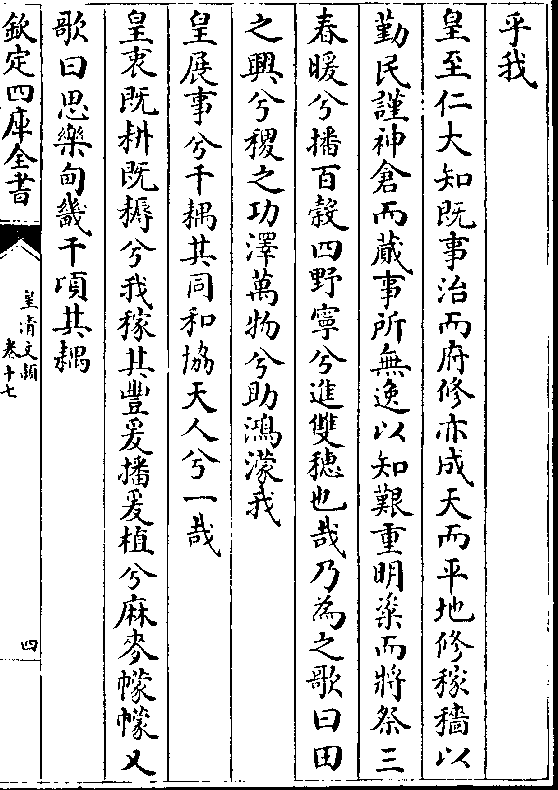 乎我
皇至仁大知既事治而府修亦成天而平地修稼穡以
勤民謹神倉而蕆事所無逸以知艱重明粢而將祭三
春暖兮播百穀四野寧兮進雙穗也哉乃為之歌曰田
之興兮稷之功澤萬物兮助鴻濛我
皇展事兮千耦其同和協天人兮一哉
皇衷既耕既耨兮我稼其豐爰播爰植兮麻麥幪幪又
歌曰思樂甸畿千頃其耦
欽定四庫全書
皇清文穎
卷十七
四